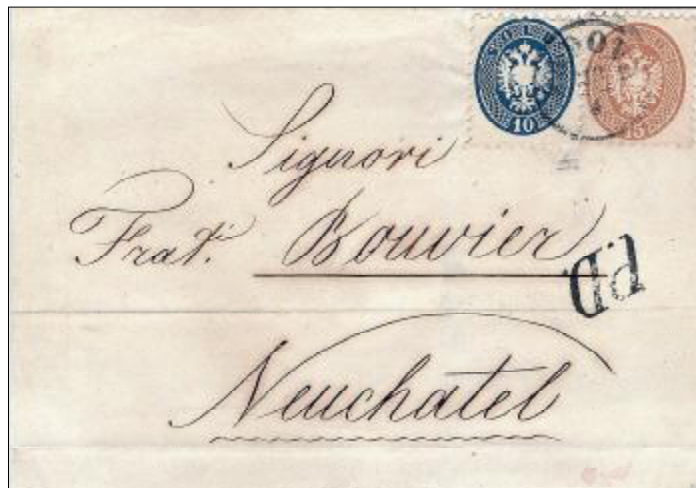 10
15
Signori
Frat: Bouvier
P.D.
Neuchatel